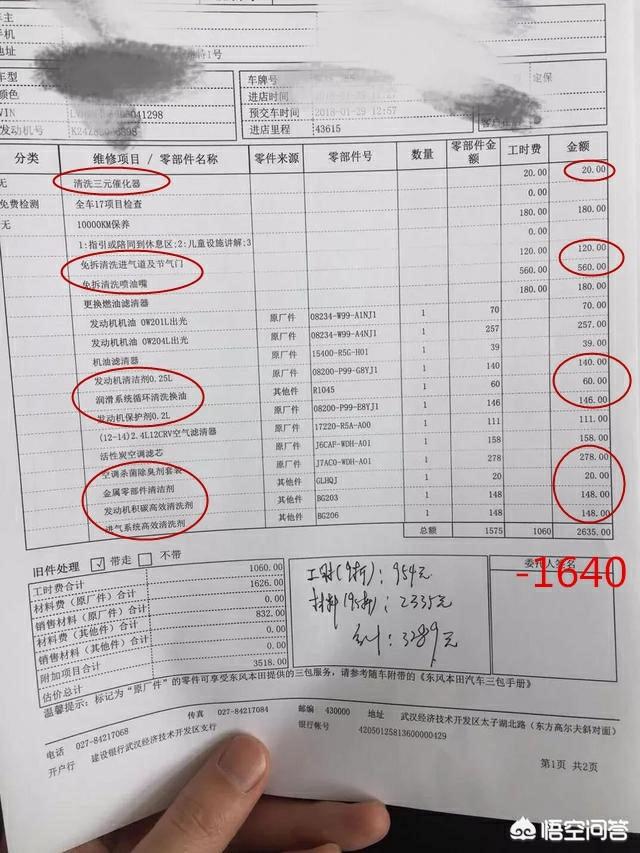 车主
手机
地址 路1号
车型
颜色
VIN 041298
发动机号 K24Z8
车牌号
进店时间
预交车时间 2018-01-29 12:57
进店里程 43615
定保
分类 维修项目 / 零部件名称 零件来源 零部件号 数量 零部件金额 工时费 金额
无 清洗三元催化器 20.00 20.00
免费检测 全车17项目检查 0.00
无 10000KM保养 180.00 180.00
1:指引或陪同到休息区;2:儿童设施讲解;3 0.00
免拆清洗进气道及节气门 120.00 120.00
免拆清洗喷油嘴 560.00 560.00
更换燃油滤清器 180.00 180.00
发动机机油 0W201L出光 原厂件 08234-W99-A1NJ1 1 70 70.00
发动机机油 0W204L出光 原厂件 08234-W99-A4NJ1 1 257 257.00
机油滤清器 原厂件 15400-R5G-H01 1 39 39.00
发动机清洁剂0.25L 原厂件 08200-P99-G8YJ1 1 140 140.00
润滑系统循环清洗换油 其他件 R1045 1 60 60.00
发动机保护剂0.2L 原厂件 08200-P99-E8YJ1 1 146 146.00
(12-14)2.4L12CRV空气滤清器 原厂件 17220-R5A-A00 1 111 111.00
活性炭空调滤芯 原厂件 J6CAF-WDH-A01 1 158 158.00
空调杀菌除臭剂套装 原厂件 J7AC0-WDH-A01 1 278 278.00
金属零部件清洁剂 其他件 GLHQJ 1 20 20.00
发动机积碳高效清洗剂 其他件 BG203 1 148 148.00
进气系统高效清洗剂 其他件 BG206 1 148 148.00
总额 1575 1060 2635.00
旧件处理 √ 带走 不带
工时费合计 1060.00
材料费（原厂件）合计 1626.00
销售材料（原厂件）合计 0.00
材料费（其他件）合计 832.00
销售材料（其他件）合计 0.00
附加项目合计 0.00
估价总计 3518.00
工时(9折): 954元
材料(95折): 2335元
合计: 3289元
委托人签名
-1640
温馨提示：标记为“原厂件”的零件可享受东风本田提供的三包服务，请参考随车附带的《东风本田汽车三包手册》
电话 027-84217068 传真 027-84217084 邮编 430000 地址 武汉经济技术开发区太子湖北路（东方高尔夫斜对面）
开户行 建设银行武汉经济技术开发区支行 银行帐号 42050125813600000429
第1页 共2页
悟空问答